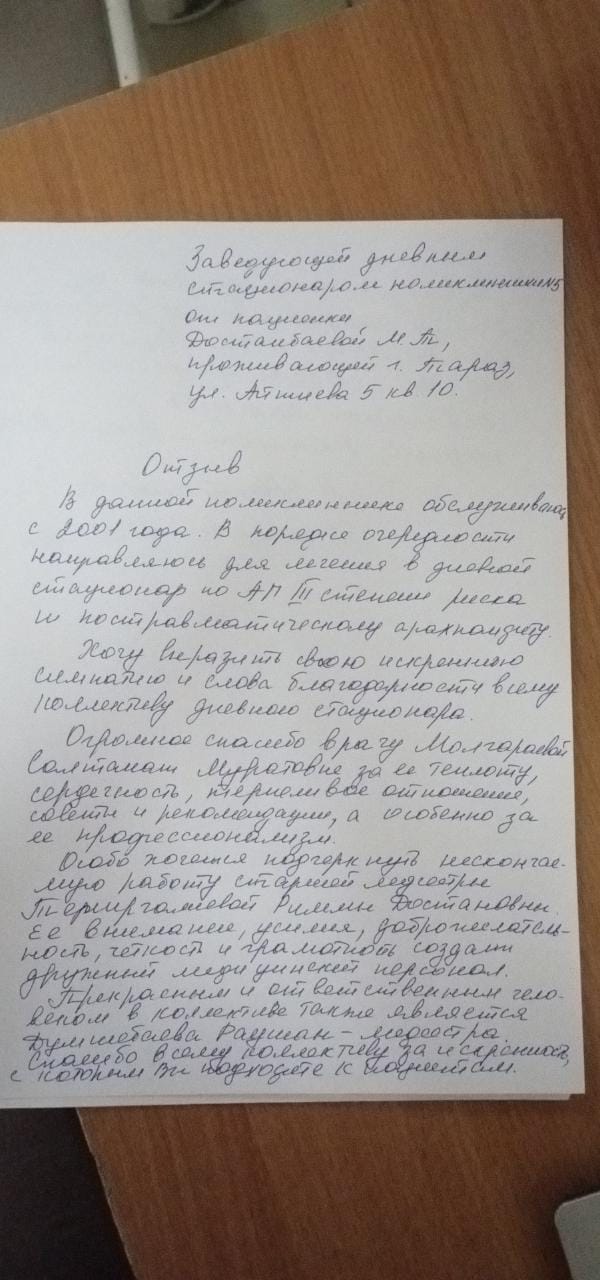 Заведующей дневным
стационаром поликлиники №5
от пациентки
Достанбаевой М.Т.,
проживающей г. Тараз,
ул. Айтиева 5 кв. 10.
Отзыв
В данной поликлинике обслуживаюсь
с 2001 года. В порядке очередности
направляюсь для лечения в дневной
стационар по АГ III степени риска
и посттравматическому арахноидиту.
Хочу выразить свою искреннюю
симпатию и слова благодарности всему
коллективу дневного стационара.
Огромное спасибо врачу Молгараевой
Мулатовне за ее теплоту,
сердечность, терпеливое отношение,
советы и рекомендации, а особенно за
ее профессионализм.
Особо хочется подчеркнуть нескончае-
мую работу старшей медсестры
Темиргалиевой Риммы Достановны.
Ее внимание, усилия, доброжелатель-
ность, чёткость и грамотность создали
дружный медицинский персонал.
Прекрасным и ответственным чело-
веком в коллективе также является
Раушан - медсестра.
Спасибо всему коллективу за искренность,
с которым Вы подходите к пациентам.